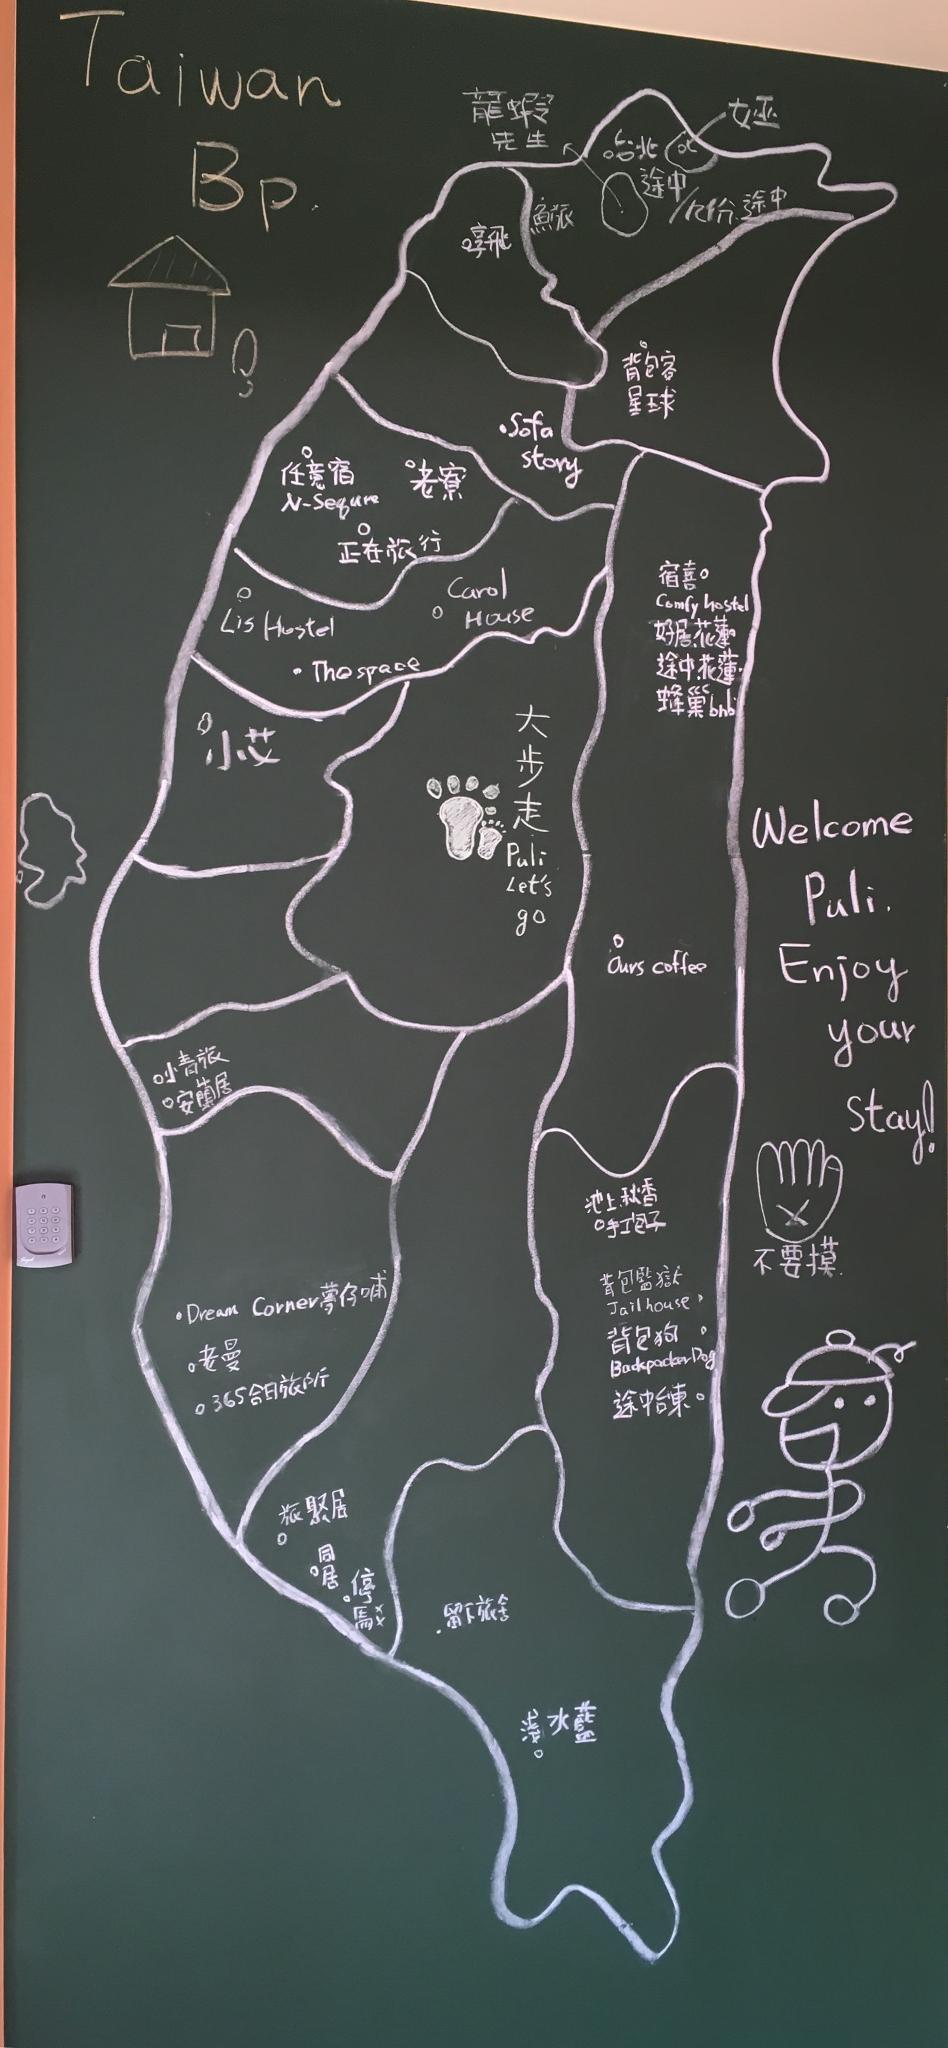 Taiwan
Bp.
龍蝦
先生
女巫
台北
途中
途中
魚旅
背包客
星球
.Sofa
story
任意宿
N-Sequre
老寮
正在旅行
Carol
House
Lis Hostel
Thespace
宿喜
Comfy hostel
好居花蓮
途中花蓮
蜂巢bnb
小艾
大
步
走
Puli
Let's
go
Welcome
Puli.
Enjoy
your
stay!
Ours coffee
小青旅
安蘭居
不要摸
池上秋香
手工包子
背包監獄
Jail house
背包狗
BackpackerDog
途中台東
Dream Corner夢仔哺
老曼
365合日旅所
旅聚居
同
居
停
馬
留下旅舍
淺水藍